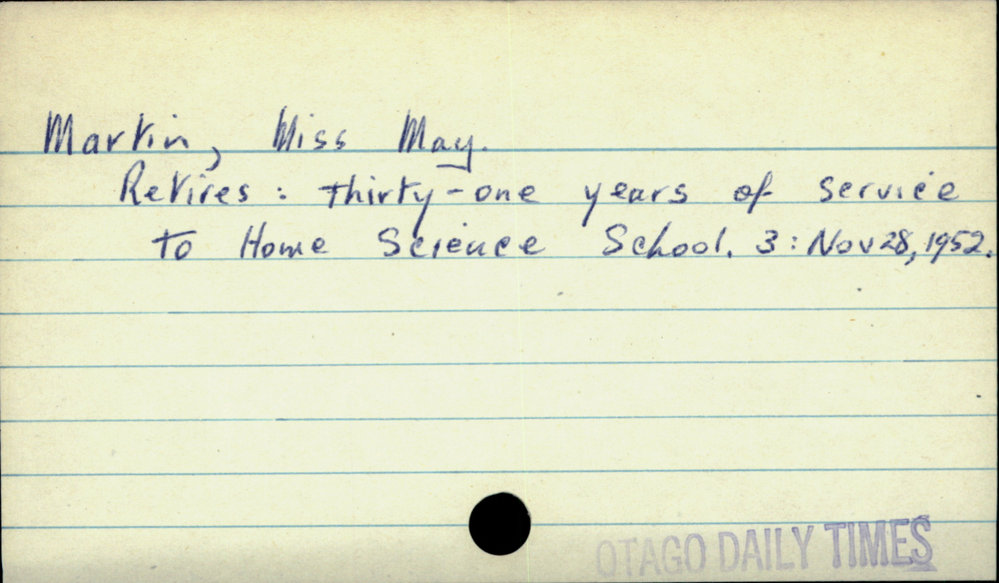 Martin, Miss May.
Retires: Thirty-one years of service
to Home Science School. 3: Nov 28, 1952.
OTAGO DAILY TIMES